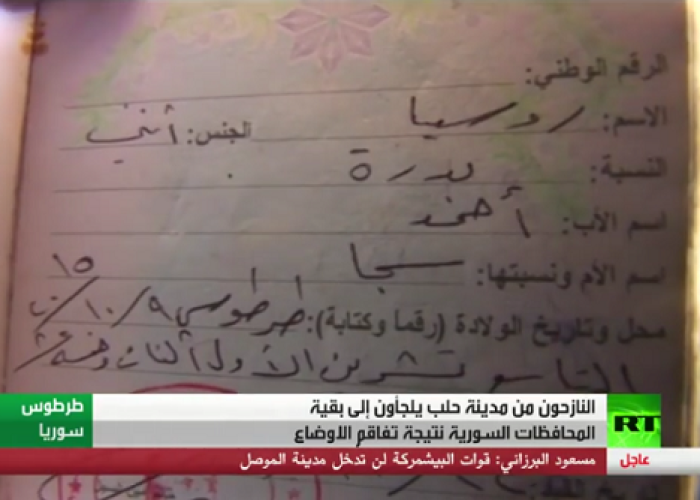 الرقم الوطني:
الاسم: روسيا الجنس: أنثى
النسبة: بدرة
اسم الأب: أحمد
اسم الأم ونسبتها: سجا
محل وتاريخ الولادة (رقما وكتابة): طرطوس ٩/١٠/٢٠١٥
التاسع تشرين الأول ألفان وخمسة عشر
طرطوس
سوريا
النازحون من مدينة حلب يلجأون إلى بقية
المحافظات السورية نتيجة تفاقم الاوضاع
RT
عاجل
مسعود البرزاني: قوات البيشمركة لن تدخل مدينة الموصل